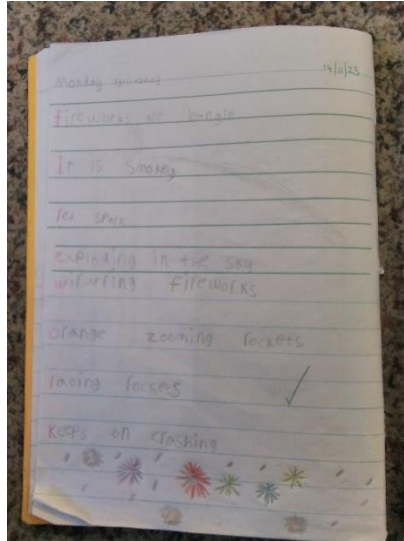 14/11/23
Monday
fireworks are bangin
It is smokey
red spark
exploding in the sky
wirwring fireworks
orange zooming rockets
racing rockets
keeps on crashing